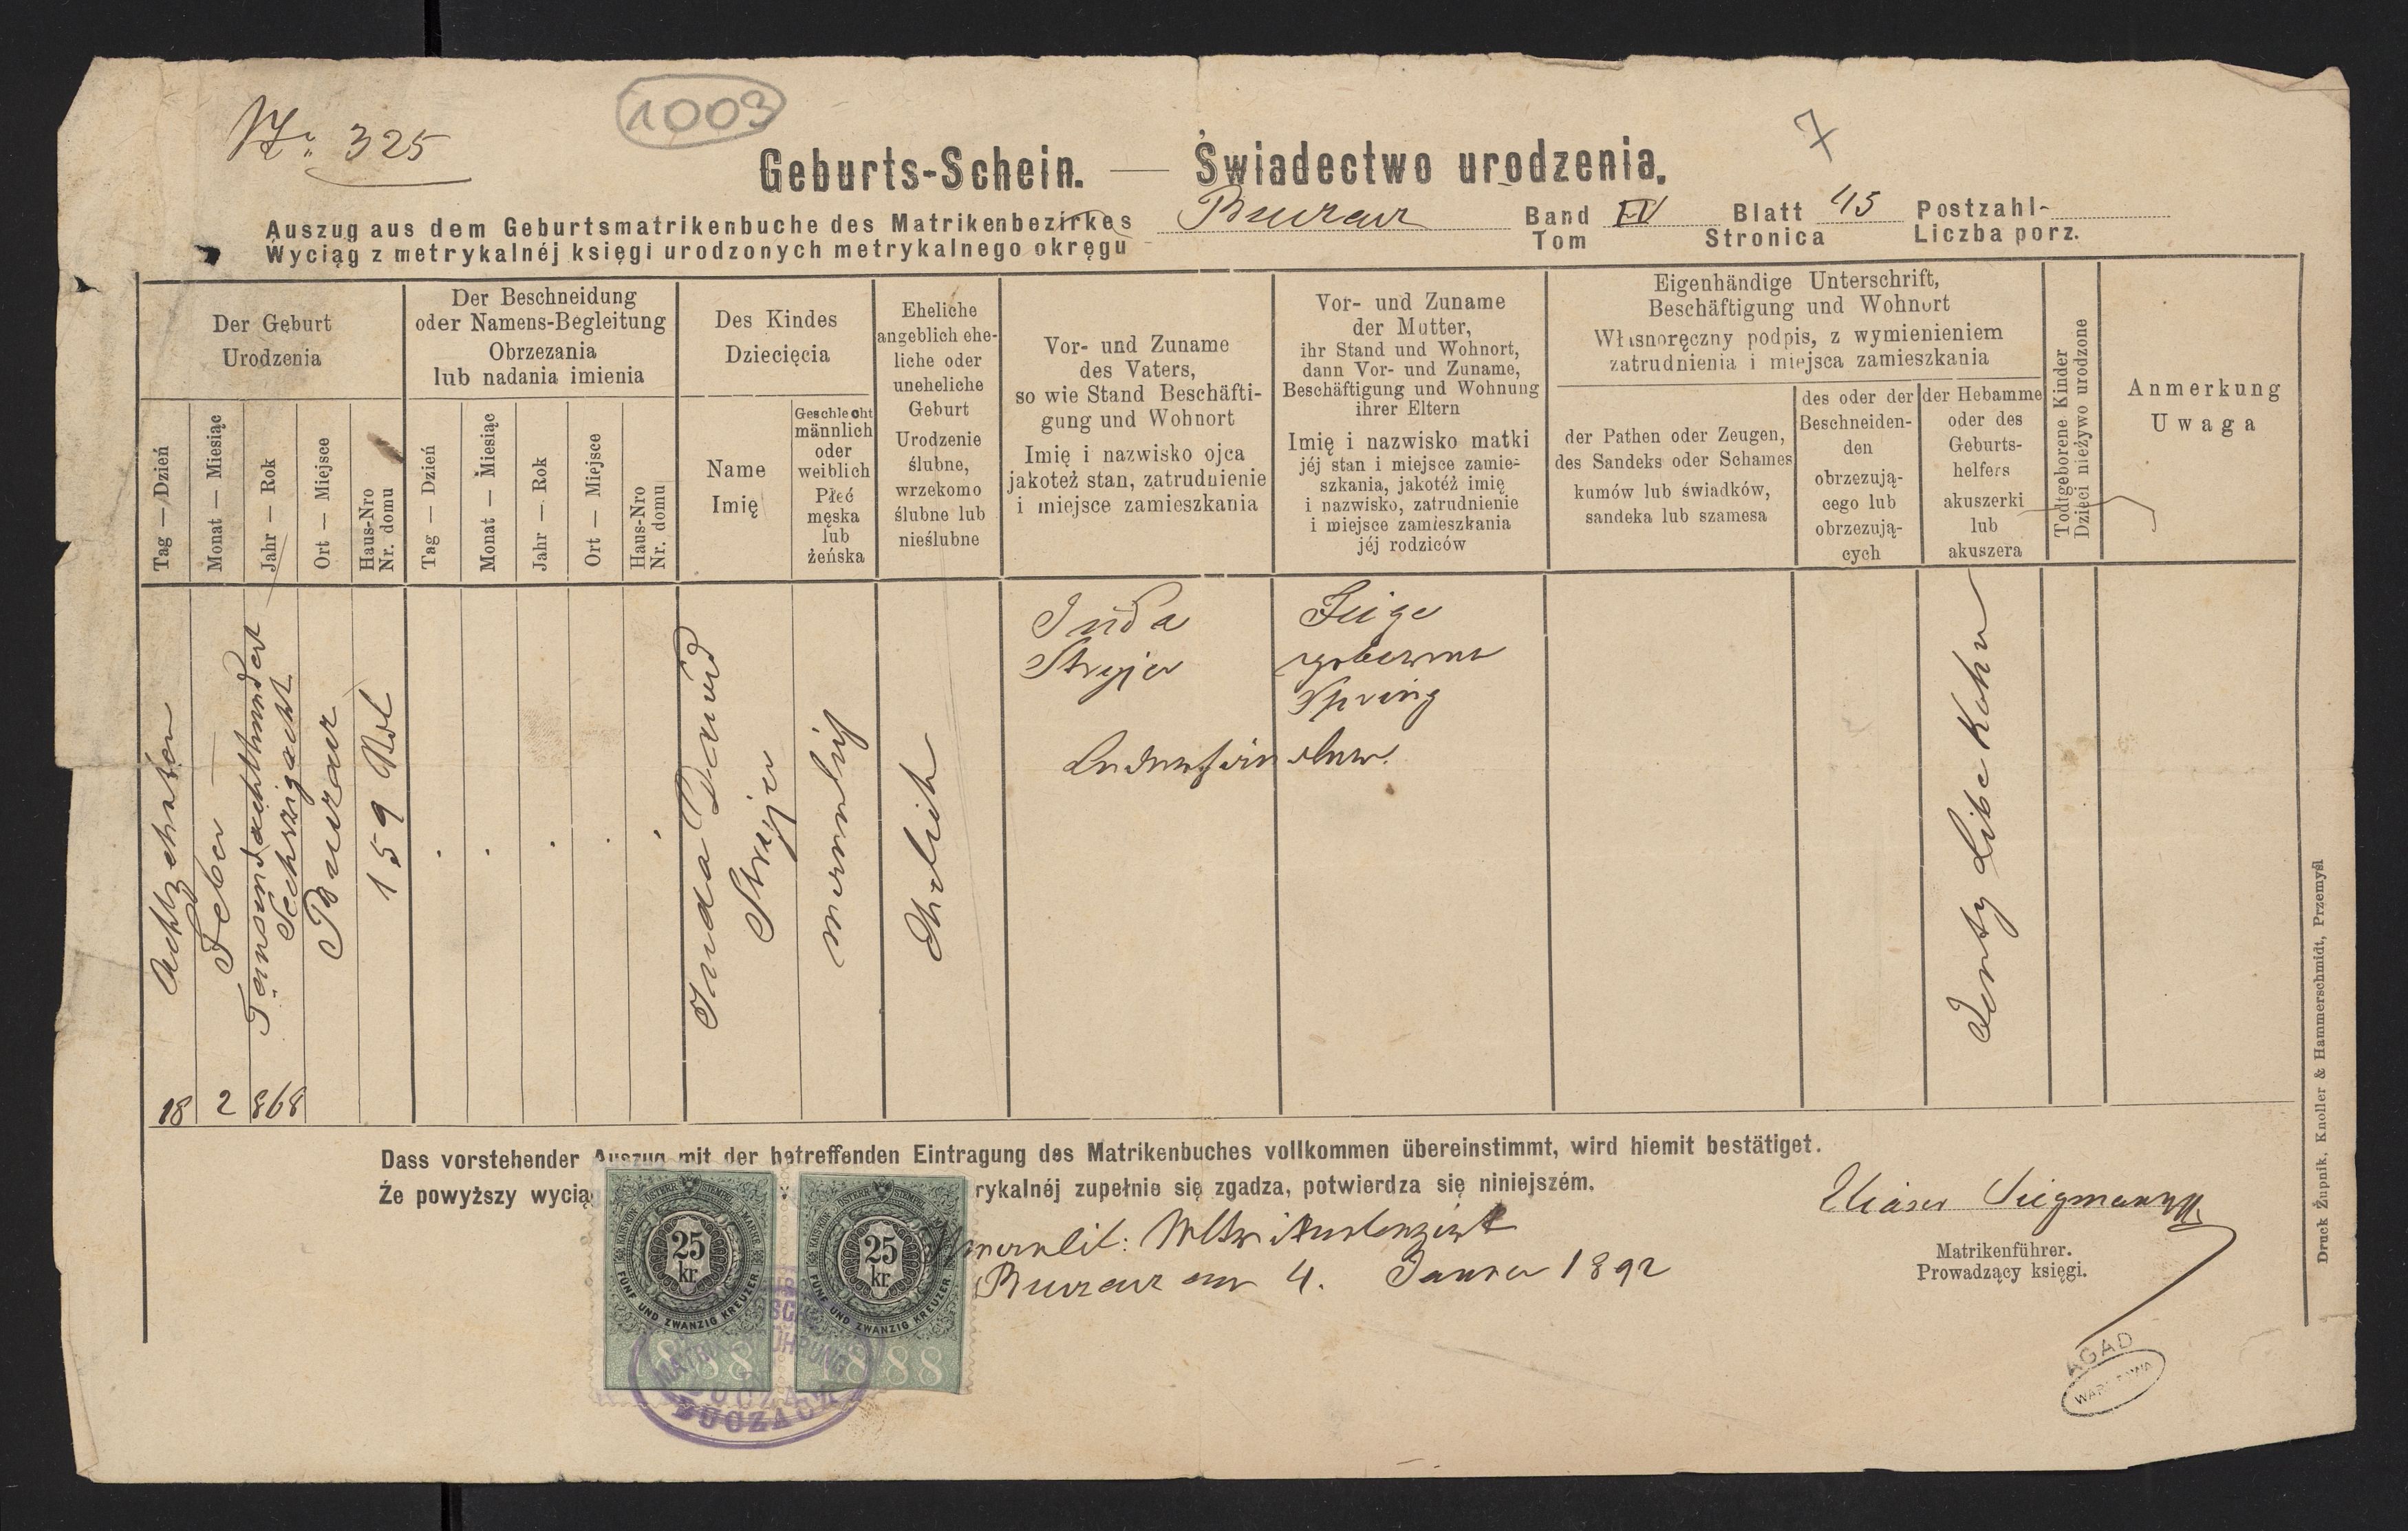 Nr: 325
1003
7
Geburts-Schein. — Świadectwo urodzenia.
Auszug aus dem Geburtsmatrikenbuche des Matrikenbezirkes Buczacz Band IV Blatt 45 Postzahl
Wyciąg z metrykalnéj księgi urodzonych metrykalnego okręgu Tom Stronica Liczba porz.
Der Geburt
Urodzenia
Tag — Dzień
Monat — Miesiąc
Jahr — Rok
Ort — Miejsce
Haus-Nro
Nr. domu
Der Beschneidung
oder Namens-Begleitung
Obrzezania
lub nadania imienia
Tag — Dzień
Monat — Miesiąc
Jahr — Rok
Ort — Miejsce
Haus-Nro
Nr. domu
Des Kindes
Dziecięcia
Name
Imię
Geschlecht
männlich
oder
weiblich
Płeć
męska
lub
żeńska
Eheliche
angeblich ehe-
liche oder
uneheliche
Geburt
Urodzenie
ślubne,
wrzekomo
ślubne lub
nieślubne
Vor- und Zuname
des Vaters,
so wie Stand Beschäfti-
gung und Wohnort
Imię i nazwisko ojca
jakoteż stan, zatrudnienie
i miejsce zamieszkania
Vor- und Zuname
der Mutter,
ihr Stand und Wohnort,
dann Vor- und Zuname,
Beschäftigung und Wohnung
ihrer Eltern
Imię i nazwisko matki
jéj stan i miejsce zamie-
szkania, jakotéż imię
i nazwisko, zatrudnienie
i miejsce zamieszkania
jéj rodziców
Eigenhändige Unterschrift,
Beschäftigung und Wohnort
Własnoręczny podpis, z wymienieniem
zatrudnienia i miejsca zamieszkania
der Pathen oder Zeugen,
des Sandeks oder Schames
kumów lub świadków,
sandeka lub szamesa
des oder der
Beschneiden-
den
obrzezują-
cego lub
obrzezują-
cych
der Hebamme
oder des
Geburts-
helfers
akuszerki
lub
akuszera
Todtgeborene Kinder
Dzieci nieżywo urodzone
Anmerkung
Uwaga
Achtzehnten
Feber
Tausendachthundert
Sechzigacht
Buczacz
159
Juda David
Stryjer
maennlich
Ehelich
Juda
Stryjer
Feige
geborene
Spring
Jenty Libe Kohn
18 2 868
Dass vorstehender Auszug mit der betreffenden Eintragung des Matrikenbuches vollkommen übereinstimmt, wird hiemit bestätiget.
Że powyższy wycią rykalnéj zupełnie się zgadza, potwierdza się niniejszém.
KAIS. KÖN. ÖSTERR. STEMPEL-MARKE
25
kr.
FÜNF UND ZWANZIG KREUZER
1888
KAIS. KÖN. ÖSTERR. STEMPEL-MARKE
25
kr.
FÜNF UND ZWANZIG KREUZER
1888
BUCZACZ
Buczacz am 4. Januar 1892
Matrikenführer.
Prowadzący księgi.
AGAD
WARSZAWA
Druck Żupnik, Knoller & Hammerschmidt, Przemyśl